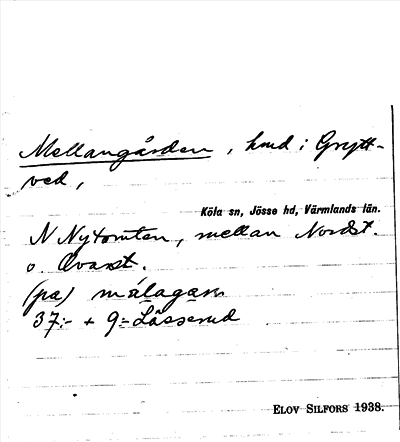 Mellangården, hmd i Grytt-
ved,
Köla sn, Jösse hd, Värmlands län.
N Nytomten, mellan Nordst.
o. Övarst.
(pa) målagaɷ
37:- + 9:- Lässerud
ELOV SILFORS 1938.